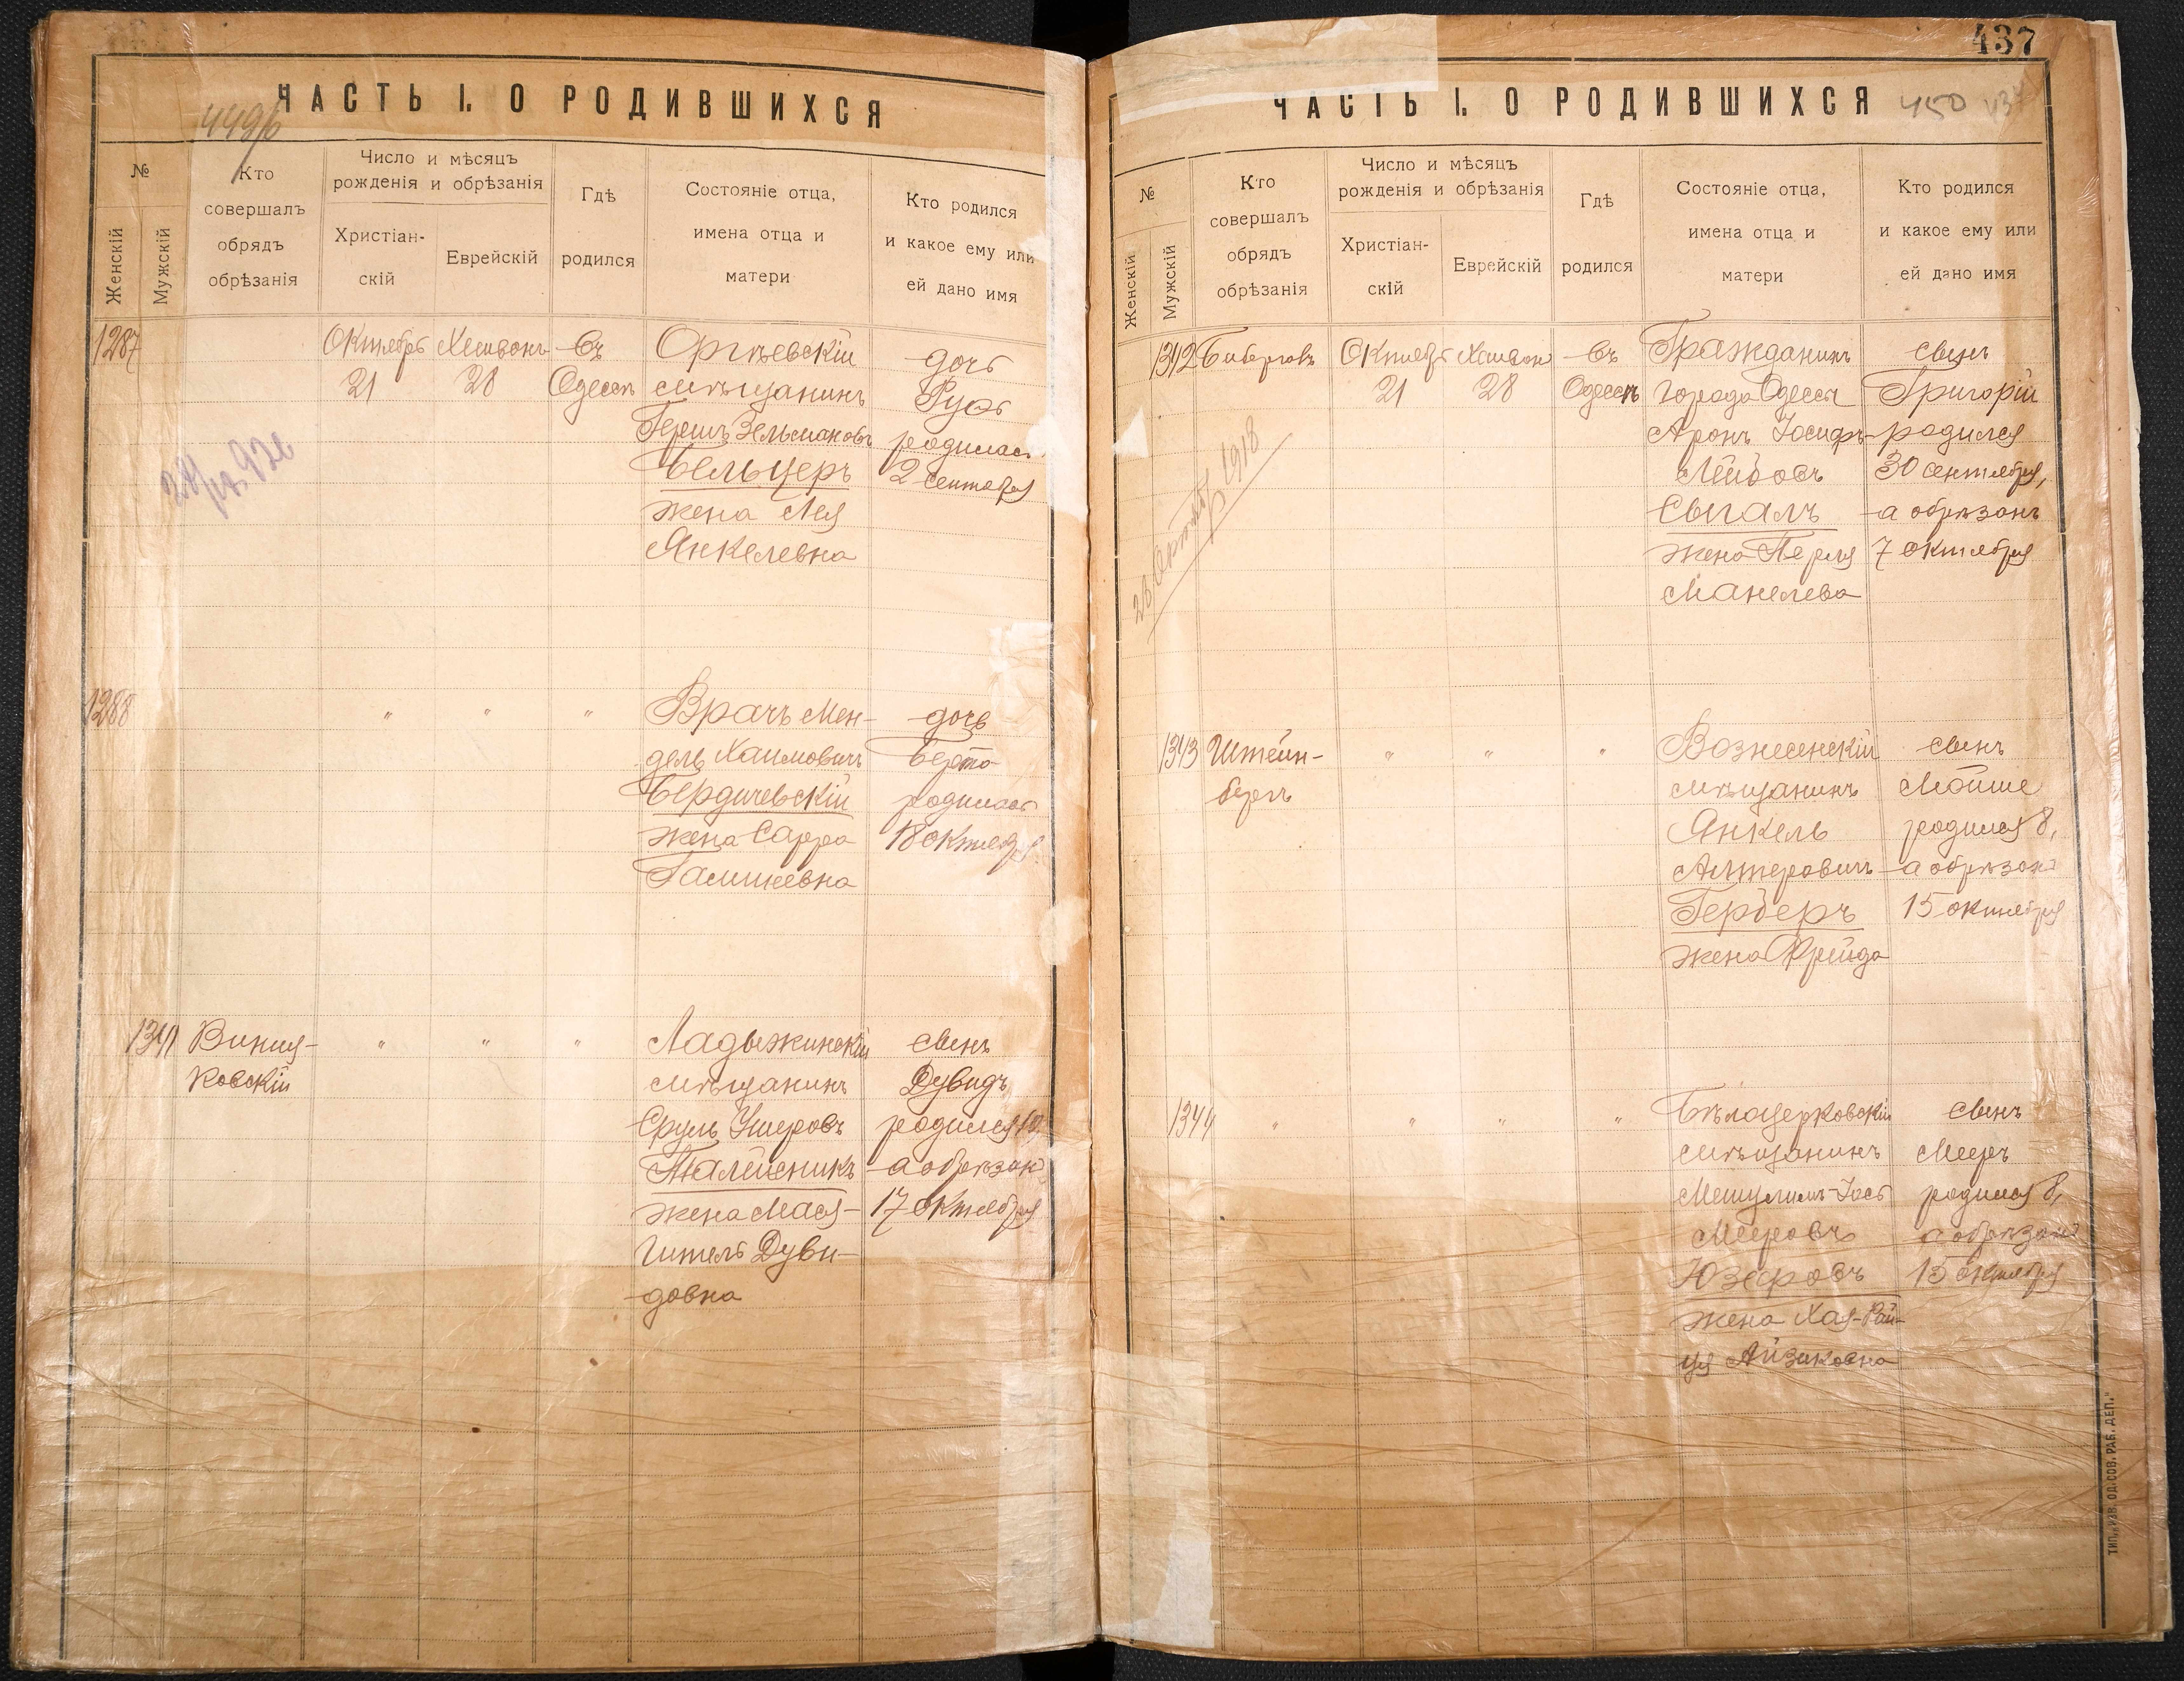 ЧАСТЬ I. О РОДИВШИХСЯ
№
Женскій
Мужскій
Кто
совершалъ
обрядъ
обрѣзанія
Число и мѣсяцъ
рожденія и обрѣзанія
Христіан-
скій
Еврейскій
Гдѣ
родился
Состояніе отца,
имена отца и
матери
Кто родился
и какое ему или
ей дано имя
1287
Октябрь
21
Хешвонъ
28
Въ
Одессѣ
Оргѣевскій
мѣщанинъ
Гершъ Зельмановъ
Бельцеръ
жена Лея
Янкелевна
дочь
Рузь
родилась
2 сентября
1288
" " "
Врачъ Мен-
дель Хаимовичъ
Бердичевскій
жена Сарра
дочь
Берта
родилась
18 октября
1341
Виния-
ковскій
" " "
Ладыжинскій
мѣщанинъ
Сруль Ушеровъ
жена Мася-
Гитель Дуви-
довна
сынъ
Дувидъ
родился 10,
а обрѣзанъ
17 октября
437
ЧАСТЬ I. О РОДИВШИХСЯ
450
№
Женскій
Мужскій
Кто
совершалъ
обрядъ
обрѣзанія
Число и мѣсяцъ
рожденія и обрѣзанія
Христіан-
скій
Еврейскій
Гдѣ
родился
Состояніе отца,
имена отца и
матери
Кто родился
и какое ему или
ей дано имя
1342
Биберговъ
Октябрь
21
Хешвон
28
Въ
Одессѣ
Гражданинъ
города Одессы
Аронъ Іосифъ-
Лейбовъ
Сыгалъ
жена Перля
Манелева
сынъ
Григорій
родился
30 сентября,
а обрѣзанъ
7 октября
28 Октябр 1918
1343
Штейн-
бергъ
" " "
Вознесенскій
мѣщанинъ
Янкель
Алтеровичъ
Герберъ
жена Фрейда
сынъ
Мойше
родился 8,
а обрѣзанъ
15 октября
1344
" " " "
Бѣлоцерковскій
мѣщанинъ
Мешулимъ-Іось
Мееровъ
Юзефовъ
жена Хая-Рай-
ця Айзиковна
сынъ
Мееръ
родился 8,
а обрѣзанъ
15 октября
ТИП. „ИЗВ. ОД. СОВ. РАБ. ДЕП."